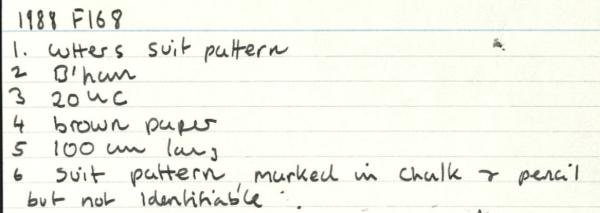 1988 F168
1. cutters suit pattern
2 B'ham
3 20th C
4 brown paper
5 100 cm long
6 suit pattern, marked in chalk & pencil
but not identifiable.